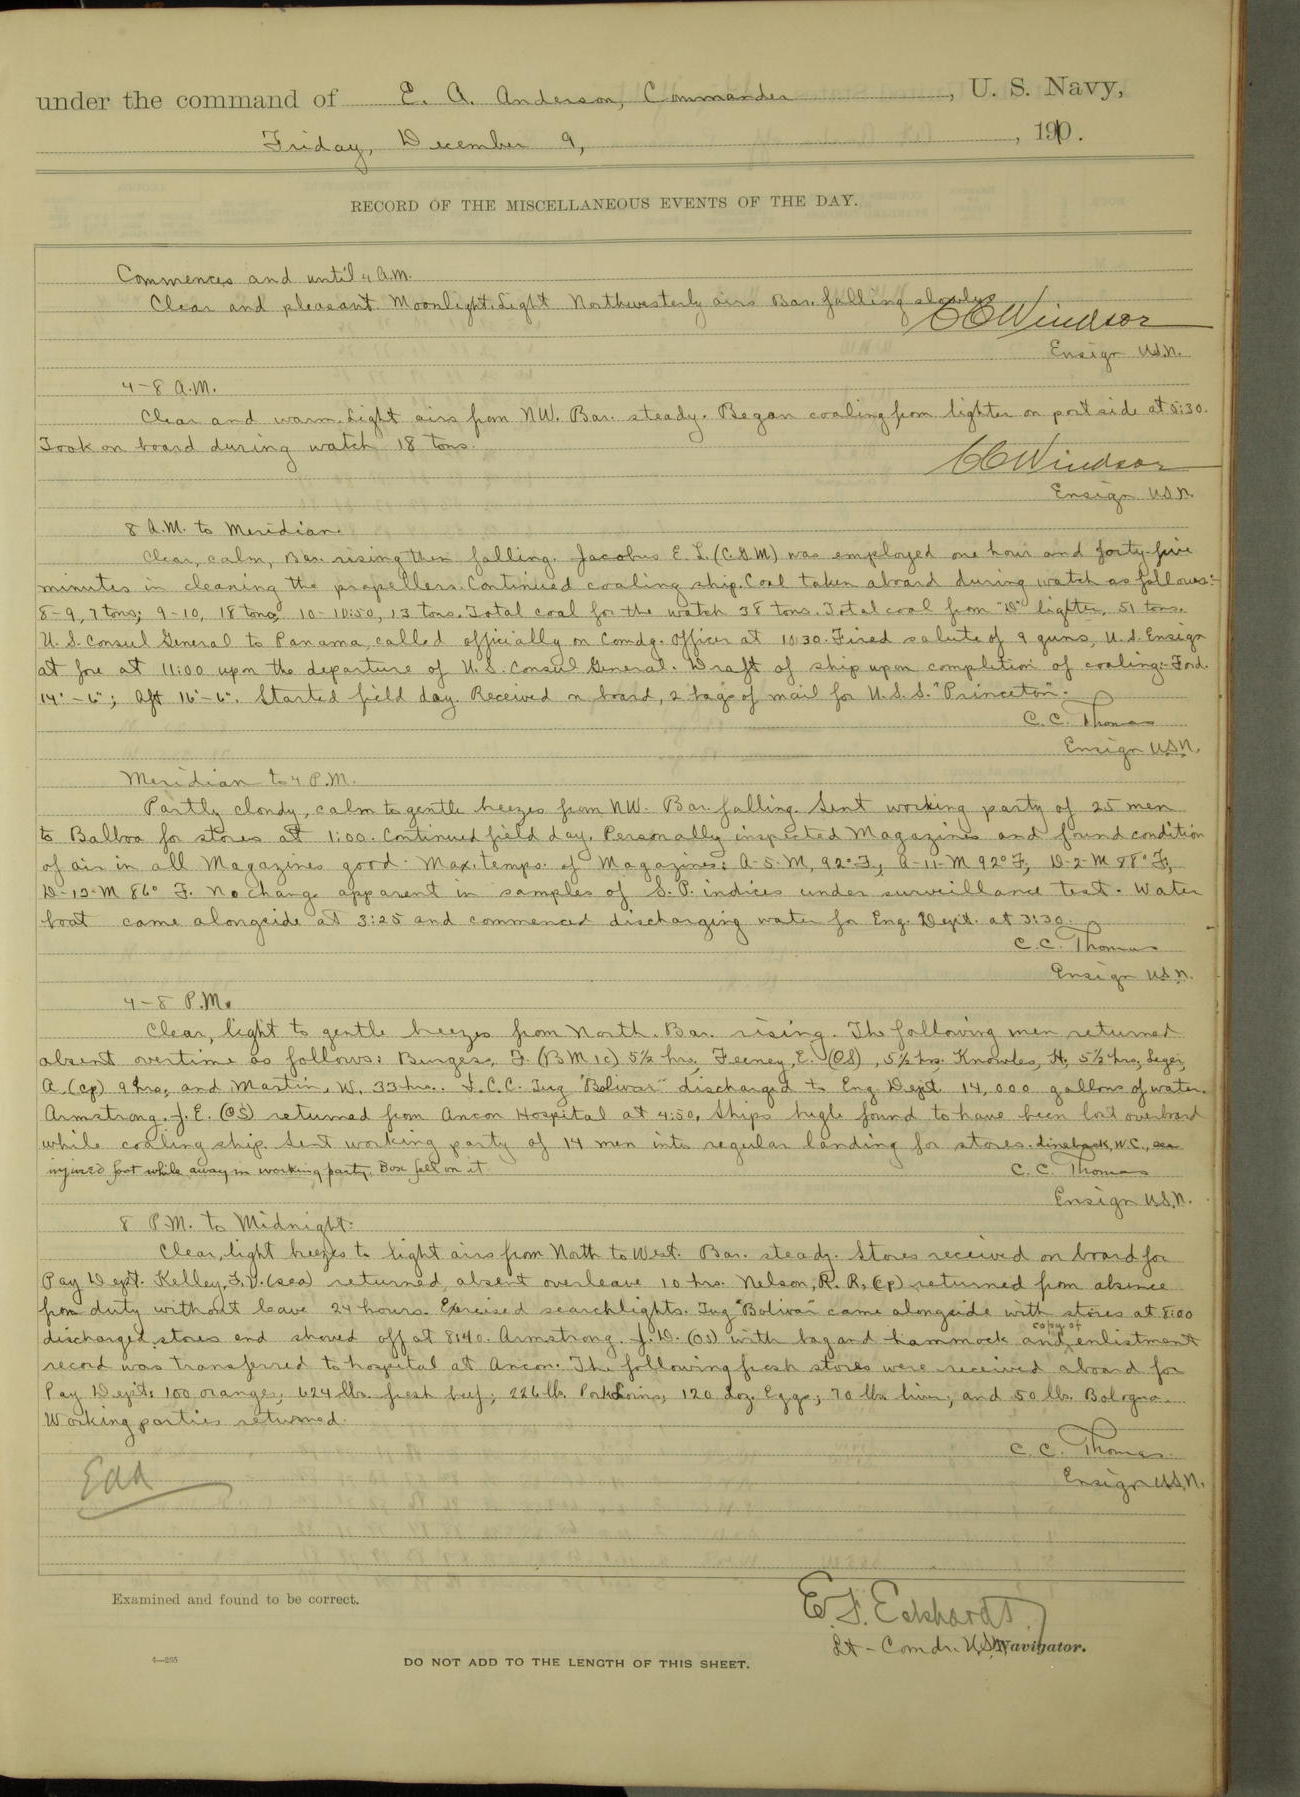 under the command of E. A. Anderson, Commander, U. S. Navy,
Friday, December 9, 1910.
RECORD OF THE MISCELLANEOUS EVENTS OF THE DAY.
Commences and until 4 A.M.
Clear and pleasant. Moonlight. Light Northwesterly airs Bar. falling slowly.
C C Windsor
Ensign U.S.N.
4-8 A.M.
Clear and warm. Light airs from NW. Bar. steady. Began coaling from lighter on port side at 5:30.
Took on board during watch 18 tons.
C C Windsor
Ensign U.S.N.
8 A.M. to Meridian.
Clear, calm, Bar. rising then falling. Jacobus E. L. (C.G.M) was employed one hour and forty-five
minutes in cleaning the propellers. Continued coaling ship. Coal taken aboard during watch as follows:-
8-9, 7 tons; 9-10, 18 tons; 10-10:50, 13 tons. Total coal for the watch 38 tons. Total coal from "D" lighter, 51 tons.
U. S. Consul General to Panama, called officially on Comdg. Officer at 10:30. Fired salute of 9 guns, U. S. Ensign
at fore at 11:00 upon the departure of U. S. Consul General. Draft of ship upon completion of coaling:- Ford.
14'-6"; Aft 16'-6". Started field day. Received on board, 2 bags of mail for U. S. S. "Princeton".
C. C. Thomas
Ensign U.S.N.
Meridian to 4 P.M.
Partly cloudy, calm to gentle breezes from NW. Bar. falling. Sent working party of 25 men
to Balboa for stores at 1:00. Continued field day. Personally inspected Magazines and found condition
of air in all Magazines good. Max. temps. of Magazines: A-5-M, 92° F., A-11-M 92° F; D-2-M 88° F;
D-12-M 86° F. No change apparent in samples of S. P. indices under surveillance test. Water
boat came alongside at 3:25 and commenced discharging water for Eng. Dept. at 3:30.
C. C. Thomas
Ensign U.S.N.
4-8 P.M.
Clear, light to gentle breezes from North. Bar. rising. The following men returned
absent overtime as follows: Burgess, F. (B M 1c) 5½ hrs, Feeney, E. (OS), 5½ hrs. Knowles, H, 5½ hrs, Seger,
A. (cp) 9 hrs, and Martin, W. 33 hrs. I. C. C. Tug "Bolivar" discharged to Eng. Dept 14,000 gallons of water.
Armstrong, J. E. (OS) returned from Ancon Hospital at 4:50. Ships bugle found to have been lost overboard
while coaling ship. Sent working party of 14 men into regular landing for stores. Lineback, W.C., sea
injured foot while away in working party. Box fell on it.
C. C. Thomas
Ensign U.S.N.
8 P.M. to Midnight.
Clear, light breezes to light airs from North to West. Bar. steady. Stores received on board for
Pay Dept. Kelley, F. V. (sea) returned absent overleave 10 hrs. Nelson, R. R, (cp) returned from absence
from duty without leave 24 hours. Exercised searchlights. Tug "Bolivar" came alongside with stores at 8:00
discharged stores and shoved off at 8:40. Armstrong, J. D. (OS) with bag and hammock and copy of enlistment
record was transferred to hospital at Ancon. The following fresh stores were received aboard for
Pay Dept: 100 oranges; 624 lbs. fresh beef; 226 lb. Pork Loins; 120 doz. Eggs; 70 lbs. liver; and 50 lbs. Bologna.
Working parties returned.
C. C. Thomas
Ensign U.S.N.
EAA
Examined and found to be correct.
E. F. Eckhardt
Lt-Comdr. U.S.N. Navigator.
4—265
DO NOT ADD TO THE LENGTH OF THIS SHEET.